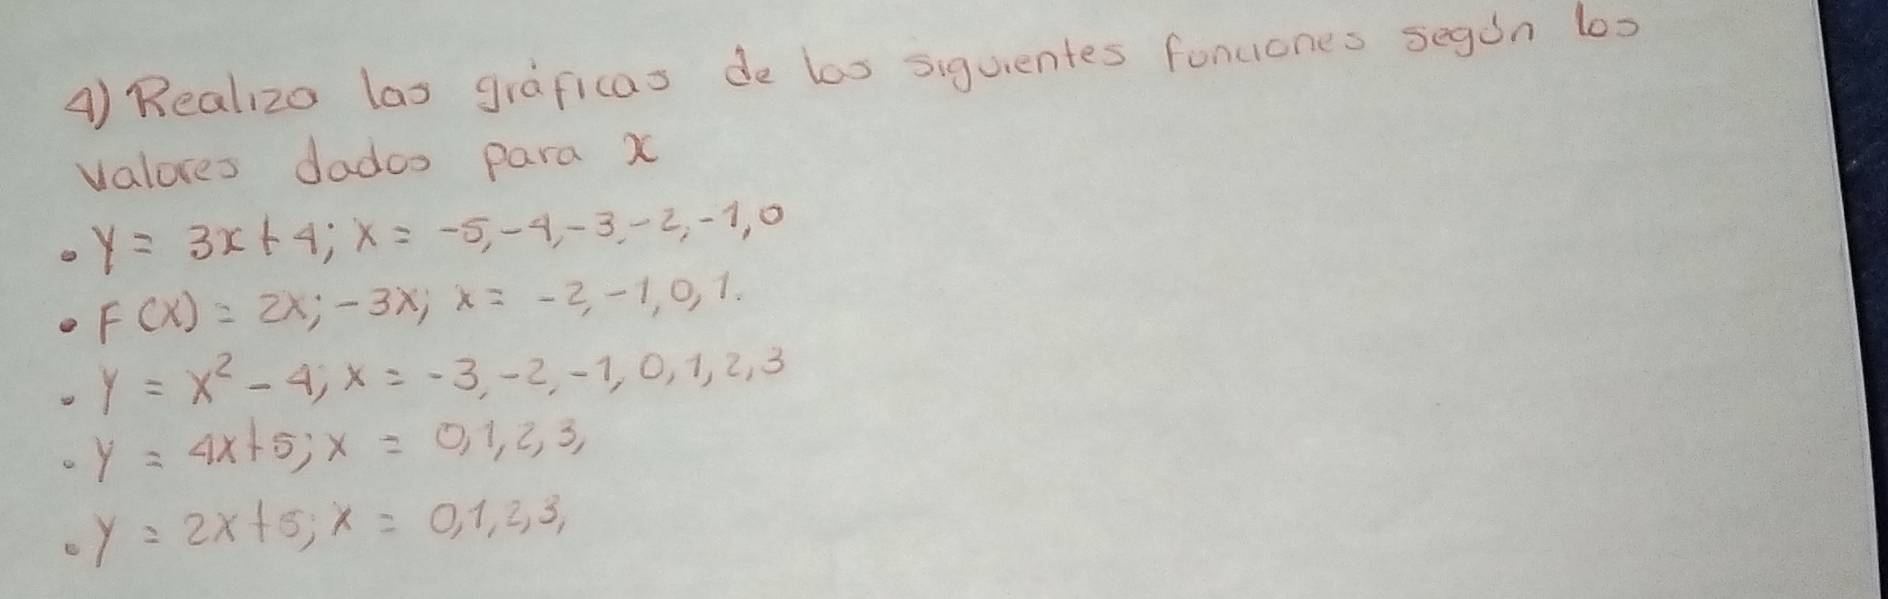 4) Realizo las gráficas de las siguientes funciones según los
valores dados para x
• y = 3x + 4; x = -5, -4, -3, -2, -1, 0
• F(x) = 2x; -3x; x = -2, -1, 0, 1.
• y = x² - 4; x = -3, -2, -1, 0, 1, 2, 3
• y = 4x + 5; x = 0, 1, 2, 3,
• y = 2x + 5; x = 0, 1, 2, 3,